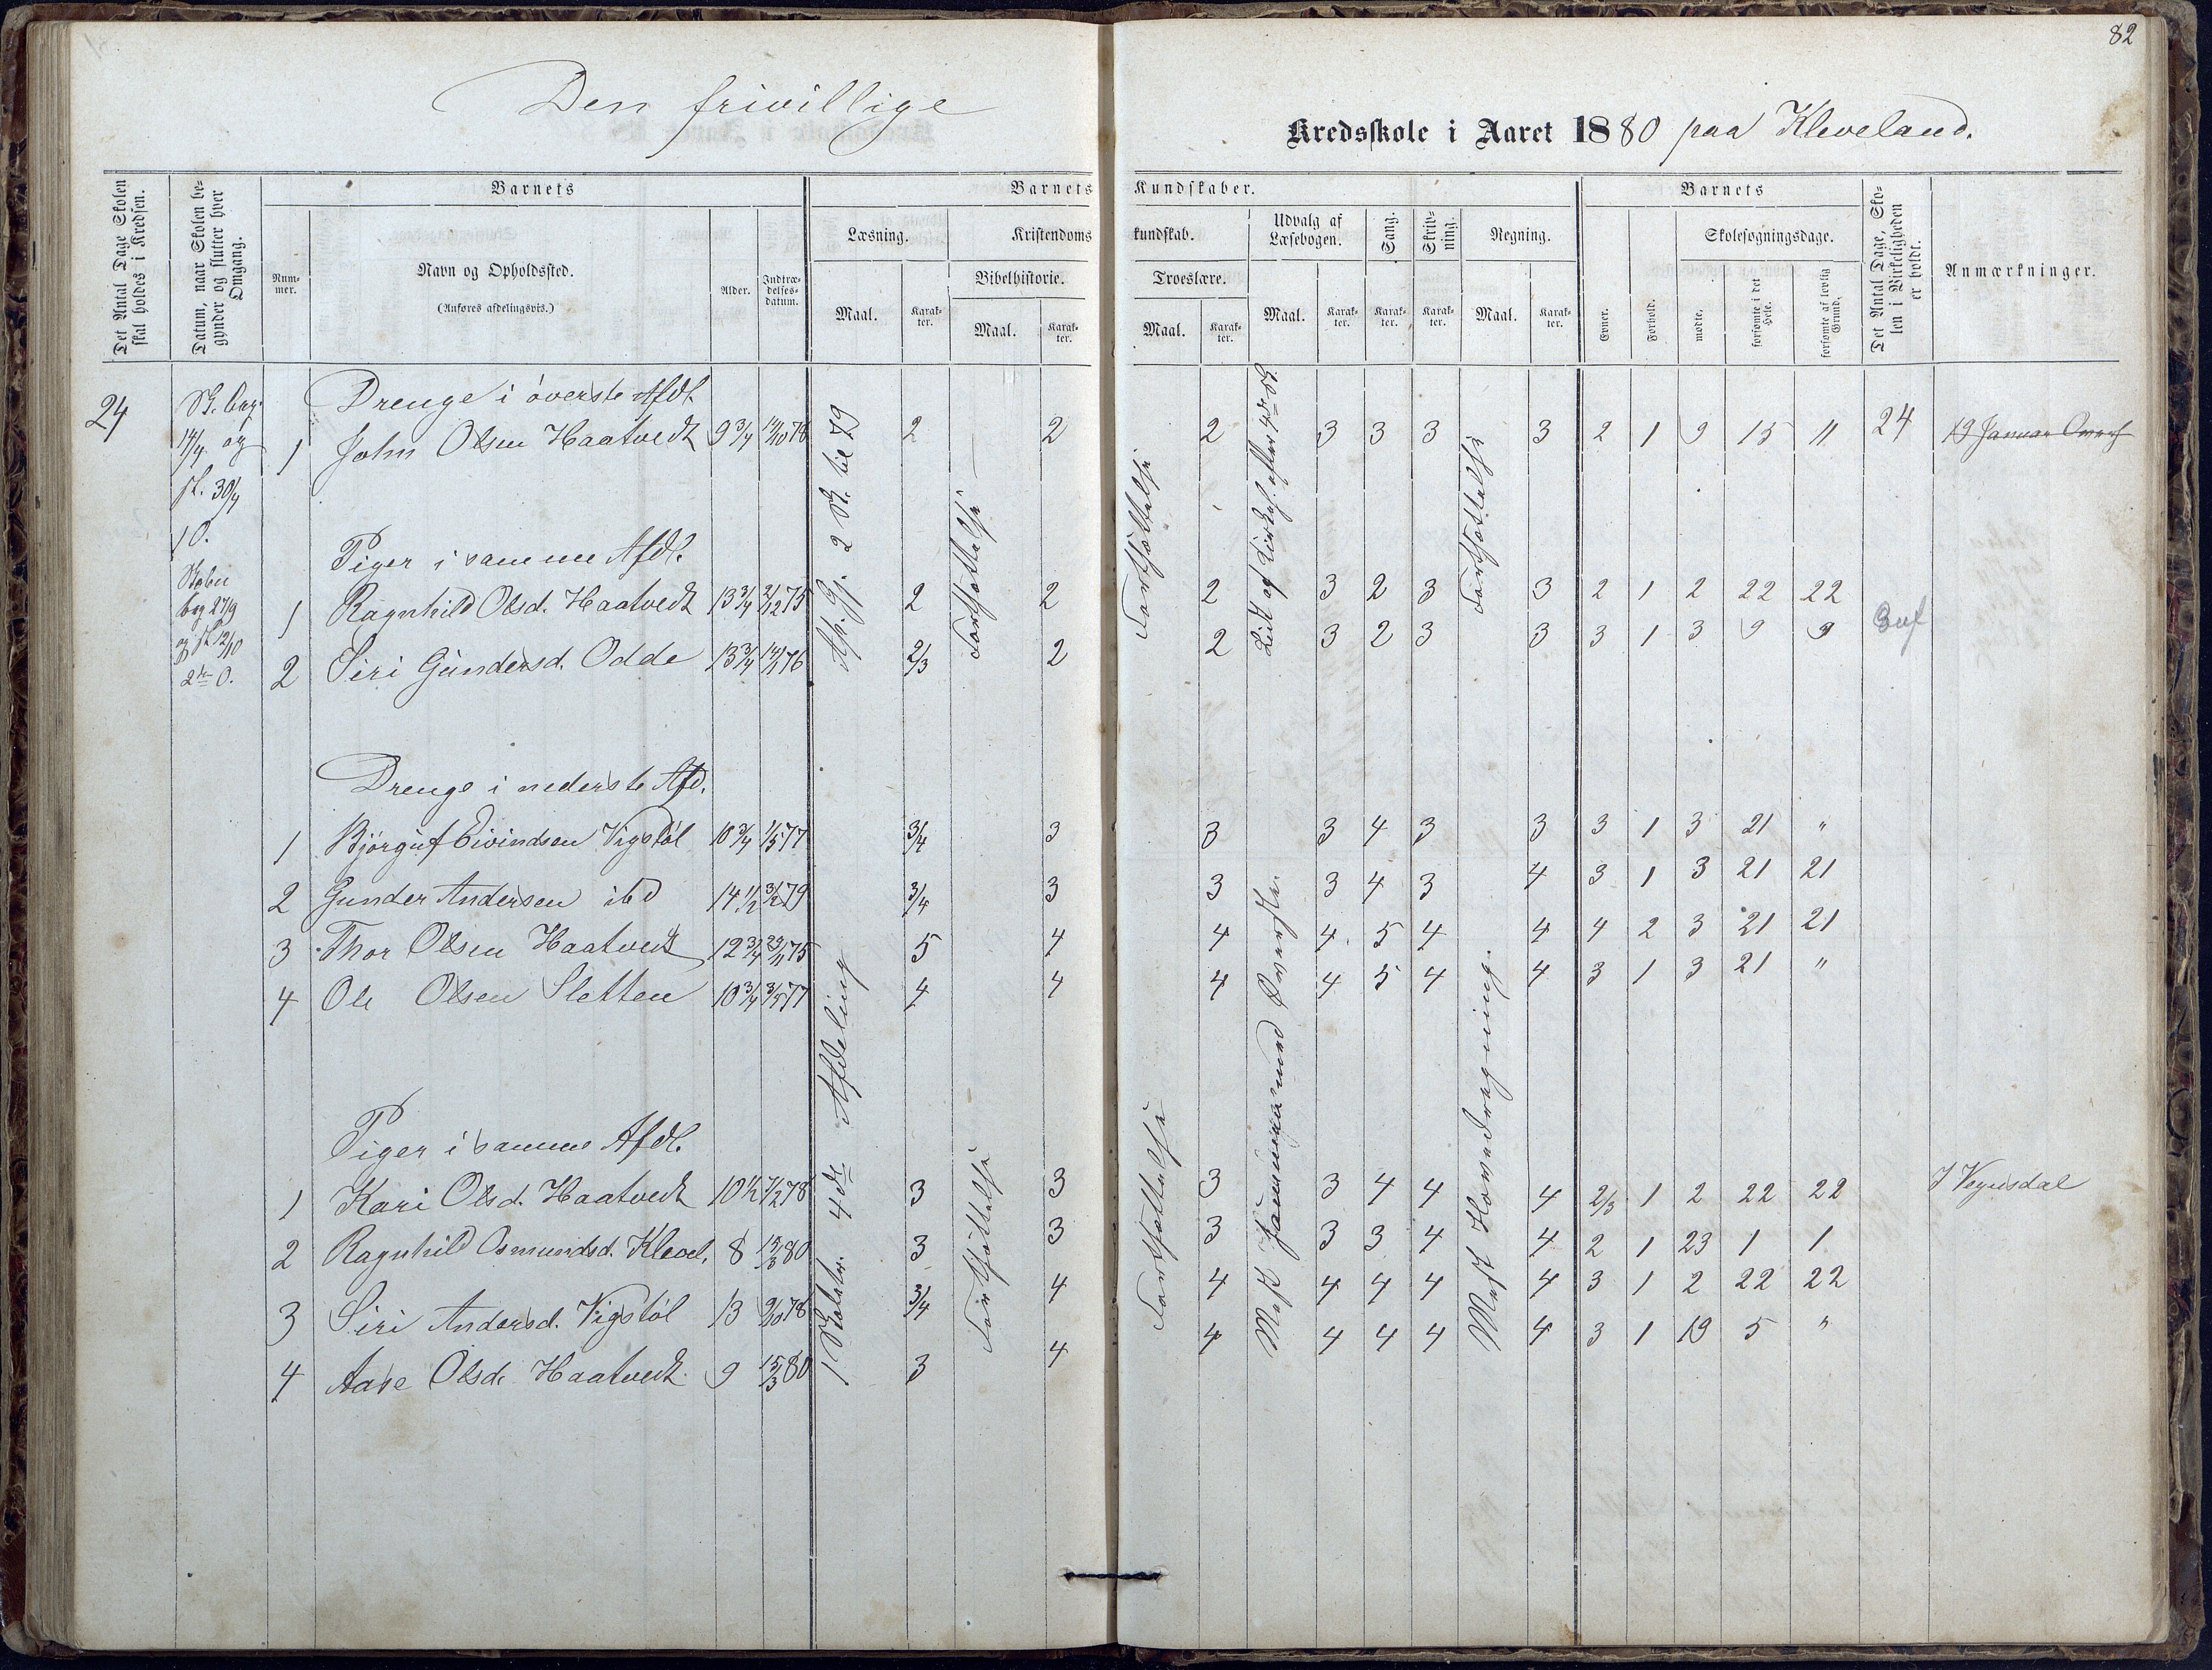 82
Den frivillige
Kredsskole i Aaret 1880 paa Kleveland.
Det Antal Dage Skolen skal holdes i Kredsen.
Datum, naar Skolen begynder og slutter hver Omgang.
Barnets
Nummer.
Navn og Opholdssted.
(Anføres afdelingsvis.)
Alder.
Indtrædelsesdatum.
Barnets Kundskaber.
Læsning.
Maal.
Karakter.
Kristendomskundskab.
Bibelhistorie.
Maal.
Karakter.
Troeslære.
Maal.
Karakter.
Udvalg af Læsebogen.
Maal.
Karakter.
Sang.
Karakter.
Skrivning.
Karakter.
Regning.
Maal.
Karakter.
Barnets
Evner.
Forhold.
Skolesøgningsdage.
mødte.
forsømte i det Hele.
forsømte af lovlig Grund.
Det Antal Dage, Skolen i Virkeligheden er holdt.
Anmærkninger.
24
Sk. beg.
14/4 og
sl. 30/4
1 O.
Skolen
beg 27/9
og sl 12/10
2den O.
Drenge i øverste Afdl.
1 John Olsen Haatvedt 9 3/4 14/10 78 2 2 2 3 3 3 3 2 1 9 15 11 24
Piger i samme Afdl.
1 Ragnhild Olsd. Haatvedt 13 3/4 2/12 75 2 2 2 3 2 3 3 2 1 2 22 22
2 Siri Gundersd. Odde 13 3/4 14/1 76 2/3 2 2 3 2 3 3 3 1 3 9 9
Fortsættelse
Fortsættelse
Fortsættelse
Drenge i nederste Afd.
1 Bjørguf Eivindsen Vigstøl 10 3/4 1/5 77 3/4 3 3 3 4 3 3 3 1 3 21 "
2 Gunder Andersen ibd 14 1/2 3/12 79 3/4 3 3 3 4 3 4 3 1 3 21 21
3 Thor Olsen Haatvedt 12 3/4 29/11 75 5 4 4 4 5 4 4 4 2 3 21 21
4 Ole Olsen Sletten 10 3/4 3/5 77 4 4 4 4 5 4 4 3 1 3 21 "
Piger i samme Afdl.
1 Kari Olsd. Haatvedt 10 1/2 7/2 78 3 3 3 3 4 4 4 2/3 1 2 22 22 I Vegusdal
2 Ragnhild Osmundsd. Klevel. 8 15/3 80 3 3 3 3 3 4 4 2 1 23 1 1
3 Siri Andersd. Vigstøl 13 9/10 78 3/4 4 4 4 4 4 4 3 1 2 22 22
4 Aase Olsd. Haatvedt 9 15/3 80 3 4 4 4 4 4 4 3 1 19 5 "
4de Afdeling
Fortsættelse
Fortsættelse
Mest Hovedregning.